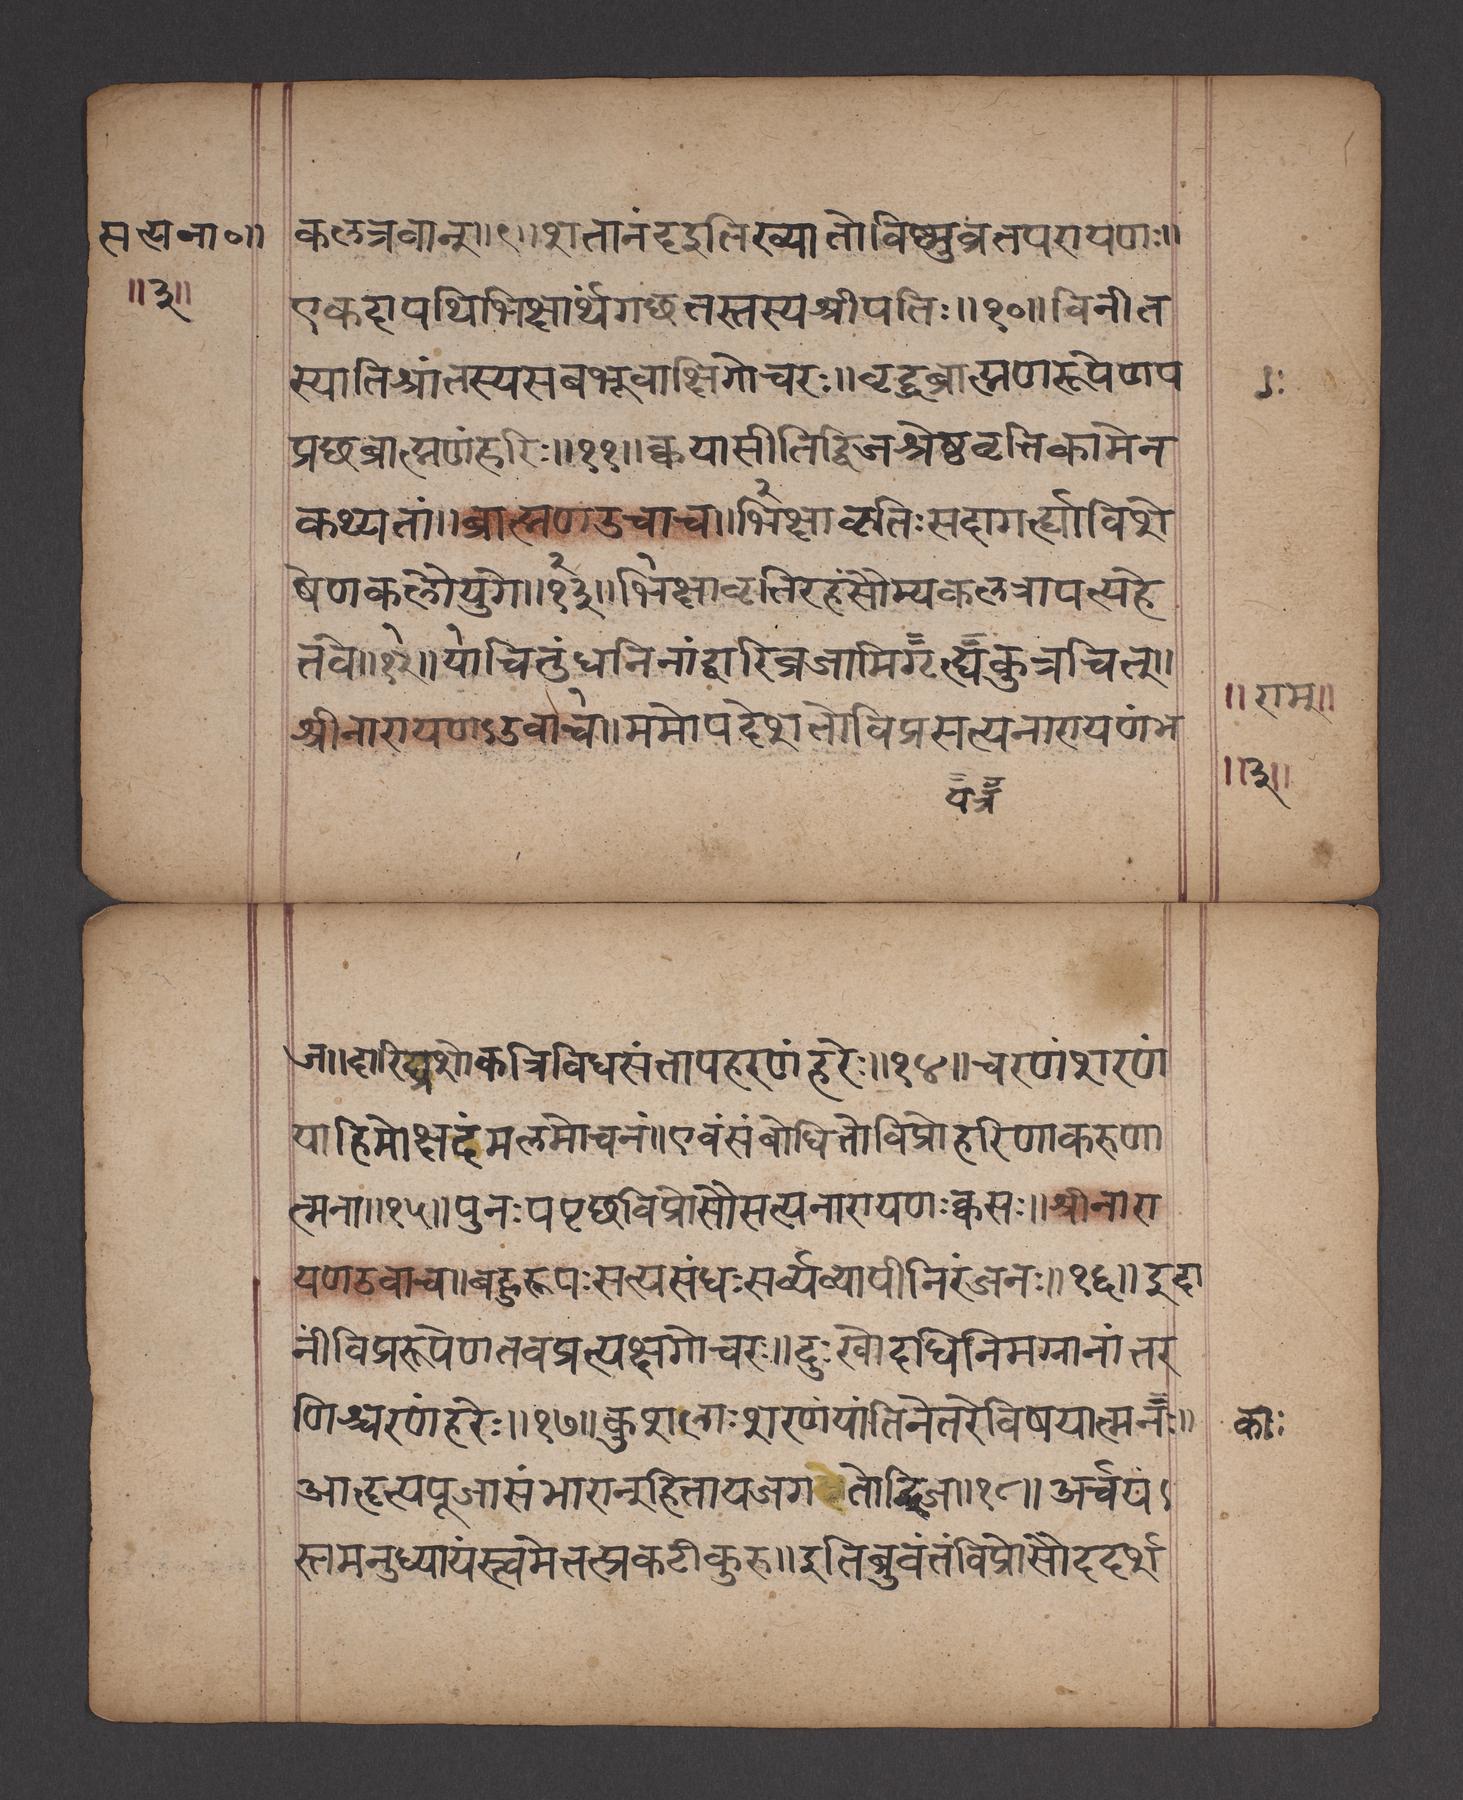 सत्यना०॥
॥३॥
कलत्रवान्॥९॥शतानंदइतिख्यातोविष्णुव्रतपरायणः॥
एकदापथिभिक्षार्थंगछतस्तस्यश्रीपतिः॥१०॥विनीत
स्यातिश्रांतस्यसबभूवाक्षिगोचरः॥वृद्धब्राह्मणरूपेणप
प्रछब्राह्मणंहरिः॥११॥क्वयासीतिद्विजश्रेष्ठवृत्तिकामेन
कथ्यतां॥ब्राह्मणउवाच॥भिक्षावृत्तिःसदागर्ह्याविशे
षेणकलौयुगे॥१३॥भिक्षावृत्तिरहंसौम्यकलत्रापत्यहे
तवे॥१२॥याचितुंधनिनांद्वारिव्रजामिगृह्यंकुत्रचित्॥
श्रीनारायणऽउवाच॥ममोपदेशतोविप्रसत्यनारायणंभ
यत्र
॥राम॥
॥३॥
ज॥दारिद्र्यशोकत्रिविधसंतापहरणंहरेः॥१४॥चरणंशरणं
याहिमोक्षदंमलमोचनं॥एवंसंबोधितोविप्रोहरिणाकरुणा
त्मना॥१५॥पुनःपपृछविप्रोसौसत्यनारायणःक्वसः॥श्रीनारा
यणउवाच॥बहुरूपःसत्यसंधःसर्व्यव्यापीनिरंजनः॥१६॥इदा
नींविप्ररूपेणतवप्रत्यक्षगोचरः॥दुःखोदधिनिमग्नानांतर
णिश्चरणंहरेः॥१७॥कुशलाःशरणंयांतिनेतरेविषयात्मनः॥
काः
आहृत्यपूजासंभारान्हितायजगतोद्विज॥१८॥अर्चयं
स्तमनुध्यायंस्त्वमेतत्प्रकटीकुरु॥इतिब्रुवंतंविप्रोसौददर्श